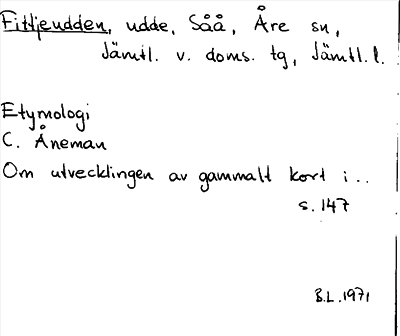 Fittjeudden, udde, Såå, Åre sn,
Jämtl. v. doms. tg, Jämtl. l.
Etymologi
C. Åneman
Om utvecklingen av gammalt kort i ..
s. 147
B.L. 1971